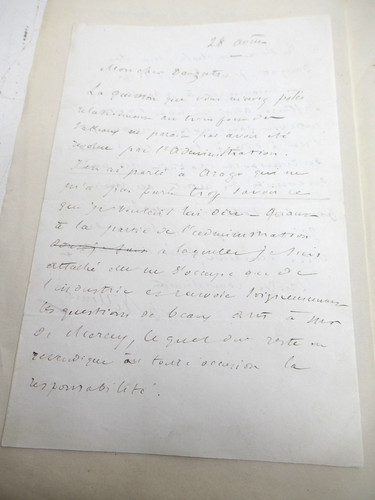 28 
Mon cher Dauzats
La question que vous m'avez posée
relativement au 
 ne parait pas avoir été
 par l'administration.
J'en ai parlé à Arago qui ne
m'a pas paru trop savoir ce
que je voulais lui dire - Quant
à la partie de l'administration
 à laquelle je suis
attaché on ne s'occupe que de
l'industrie et envoie soigneusement
les questions de beaux arts à Mr
de Mercey, lequel du reste en
revendique en toute occasion la
responsabilité.